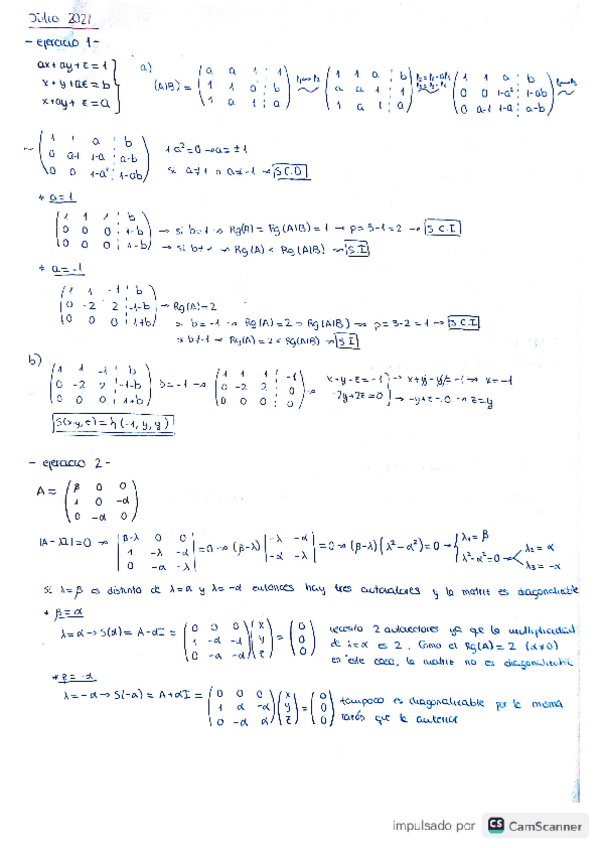 Julio 2021
- ejercicio 1 -
ax+ay+z=1
x+y+az=b
x+ay+z=a
a) (A|B) = ( a a 1 ⋮ 1 ; 1 1 a ⋮ b ; 1 a 1 ⋮ a ) ~ ( 1 1 a ⋮ b ; a a 1 ⋮ 1 ; 1 a 1 ⋮ a ) ~ ( 1 1 a ⋮ b ; 0 0 1-a² ⋮ 1-ab ; 0 a-1 1-a ⋮ a-b ) ~
~ ( 1 1 a ⋮ b ; 0 a-1 1-a ⋮ a-b ; 0 0 1-a² ⋮ 1-ab ) 1-a²=0 → a=±1
si a≠1 a≠-1 → S.C.D
* a=1
( 1 1 1 ⋮ b ; 0 0 0 ⋮ 1-b ; 0 0 0 ⋮ 1-b ) → si b=1 → Rg(A) = Rg(A|B) = 1 → p=3-1=2 → S.C.I
→ si b≠1 → Rg(A) < Rg(A|B) → S.I
* a=-1
( 1 1 -1 ⋮ b ; 0 -2 2 ⋮ -1-b ; 0 0 0 ⋮ 1+b ) → Rg(A)=2
→ b=-1 → Rg(A)=2=Rg(A|B) → p=3-2=1 → S.C.I
→ b≠-1 → Rg(A)=2<Rg(A|B) → S.I
b) ( 1 1 -1 ⋮ b ; 0 -2 2 ⋮ -1-b ; 0 0 0 ⋮ 1+b ) b=-1 → ( 1 1 1 ⋮ -1 ; 0 -2 2 ⋮ 0 ; 0 0 0 ⋮ 0 ) → x+y-z=-1 → x+y-y=-1 → x=-1
-2y+2z=0 → -y+z=0 → z=y
S(x,y,z) = { (-1, y, y)
- ejercicio 2 -
A = ( β 0 0 ; 1 0 -α ; 0 -α 0 )
|A-λI|=0 → | β-λ 0 0 ; 1 -λ -α ; 0 -α -λ | = 0 → (β-λ) | -λ -α ; -α -λ | = 0 → (β-λ)(λ²-α²)=0 → λ₁=β
λ²-α²=0 λ₂=α
λ₃=-α
Si λ=β es distinto de λ=α y λ=-α entonces hay tres autovalores y la matriz es diagonalizable
* β=α
λ=α → S(α) = A-αI = ( 0 0 0 ; 1 -α -α ; 0 -α -α ) ( x ; y ; z ) = ( 0 ; 0 ; 0 ) necesito 2 autovectores ya que la multiplicidad
de λ=α es 2. Como el Rg(A)=2 (α≠0)
en este caso, la matriz no es diagonalizable
* β=-α
λ=-α → S(-α) = A+αI = ( 0 0 0 ; 1 α -α ; 0 -α α ) ( x ; y ; z ) = ( 0 ; 0 ; 0 ) tampoco es diagonalizable por la misma
razón que la anterior
impulsado por CS CamScanner